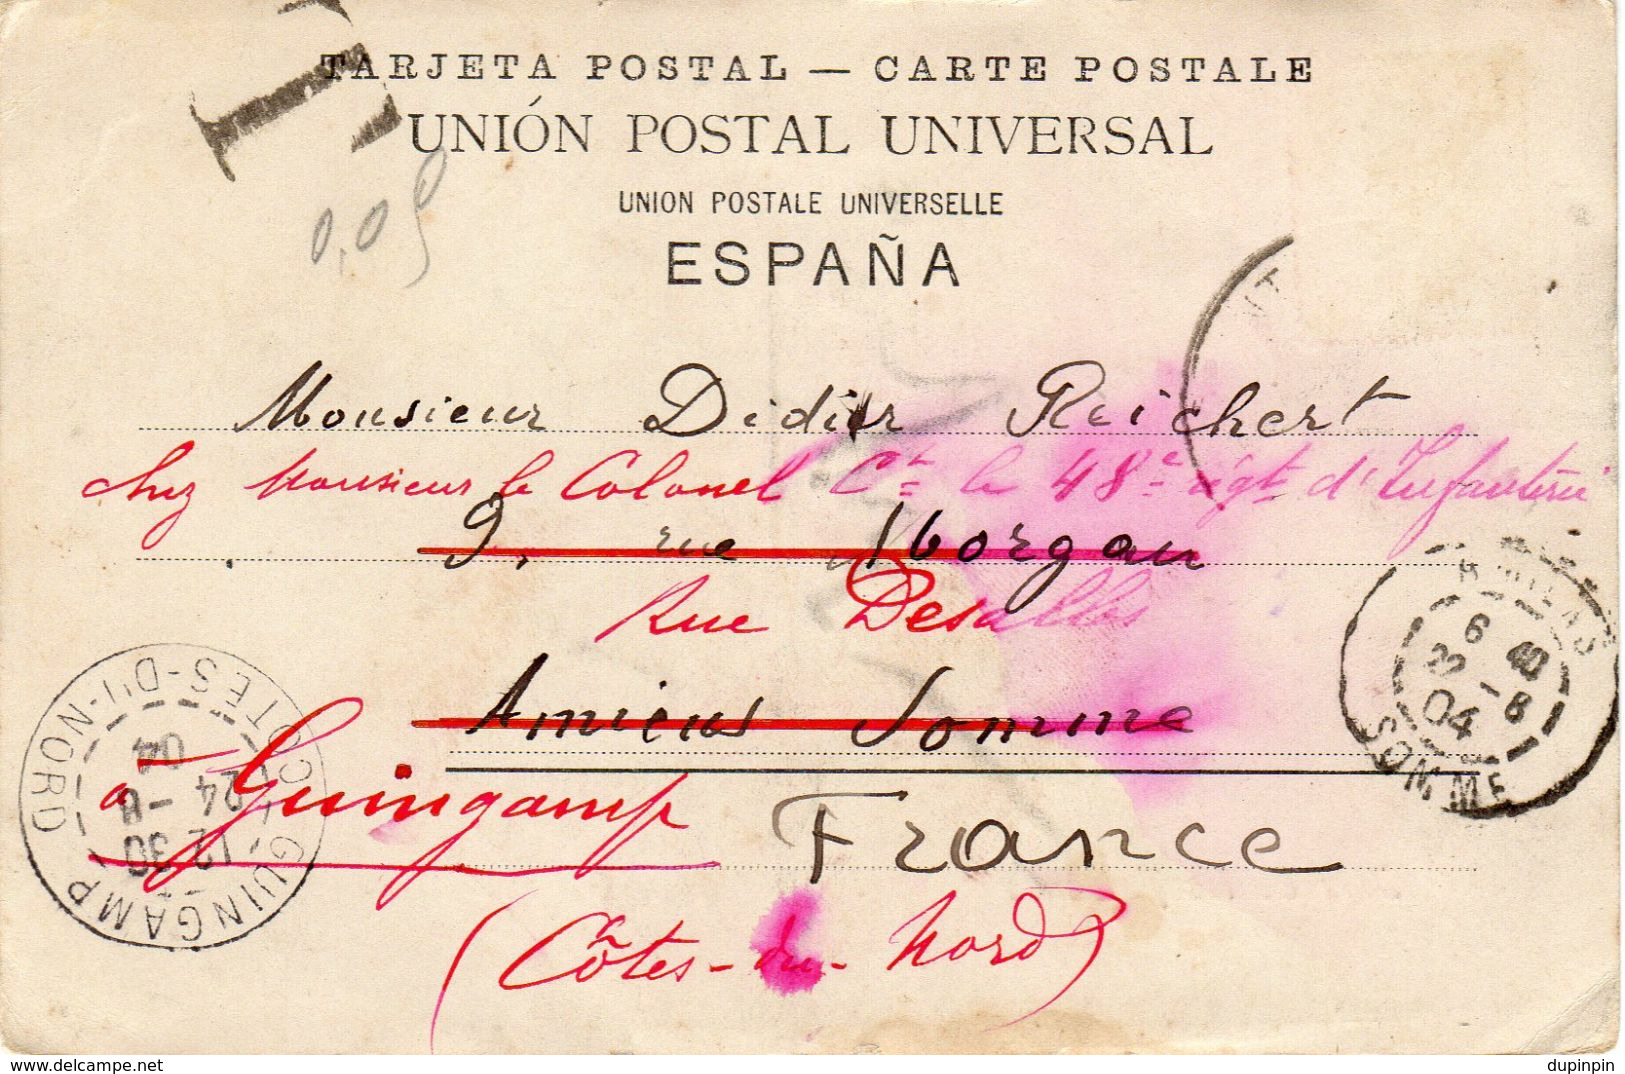 T
TARJETA POSTAL — CARTE POSTALE
UNIÓN POSTAL UNIVERSAL
0,05
UNION POSTALE UNIVERSELLE
ESPAÑA
Monsieur Didier Reichert
chez Monsieur le Colonel Ct le 48e régt d'Infanterie
9, rue Morgan
Rue Desalles
Amiens Somme
à Guingamp
France
(Côtes-du-Nord)
6 40
22 -8
04
SOMME
GUINGAMP
CÔTES-DU-NORD
12 30
24 -8
04
www.delcampe.net
dupinpin